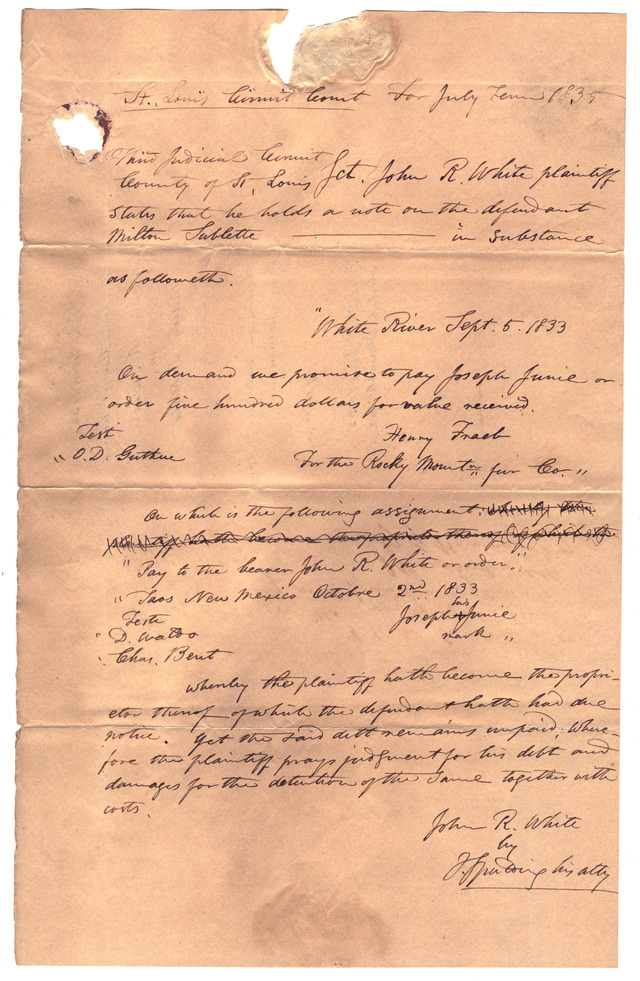 St. Louis Circuit Court For July Term 1835
Third Judicial Circuit
County of St. Louis Sct. John R. White plaintiff
States that he holds a note on the defendant
Milton Sublette —————— in substance
as followeth.
"White River Sept. 5. 1833
On demand we promise to pay Joseph Junie or
order five hundred dollars for value received.
Test Henry Fraeb
"O.D. Guthrie For the Rocky Mountn fur Co."
On which is the following assignment.
"Pay to the bearer John R. White or order."
"Taos New Mexico Octobre 2nd 1833
Teste Joseph his Junie
"D. Waldo mark "
"Chas. Bent
whereby the plaintiff hath become the propri-
etor thereof of which the defendant hath had due
notice. Yet the said debt remains unpaid. Where-
fore the plaintiff prays judgment for his debt and
damages for the detention of the same together with
costs.
John R. White
by
J Spalding his atty